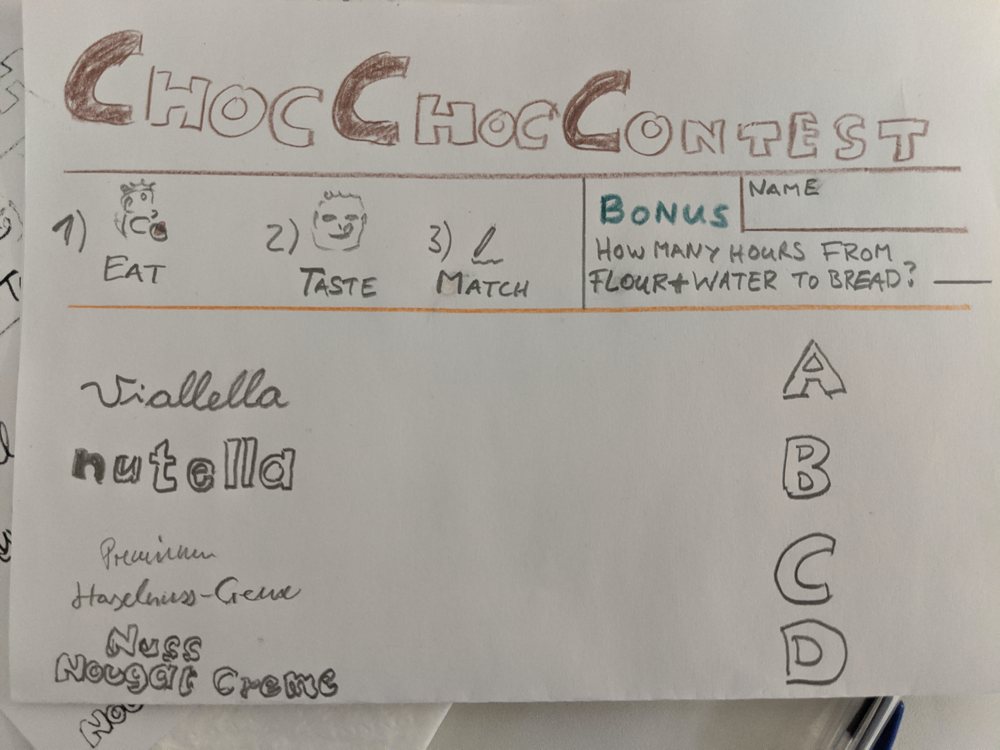 CHOC CHOC CONTEST
1) EAT
2) TASTE
3) MATCH
BONUS
NAME
HOW MANY HOURS FROM
FLOUR + WATER TO BREAD?
Viallella
nutella
Premium
Haselnuss-Creme
Nuss
Nougat Creme
A
B
C
D